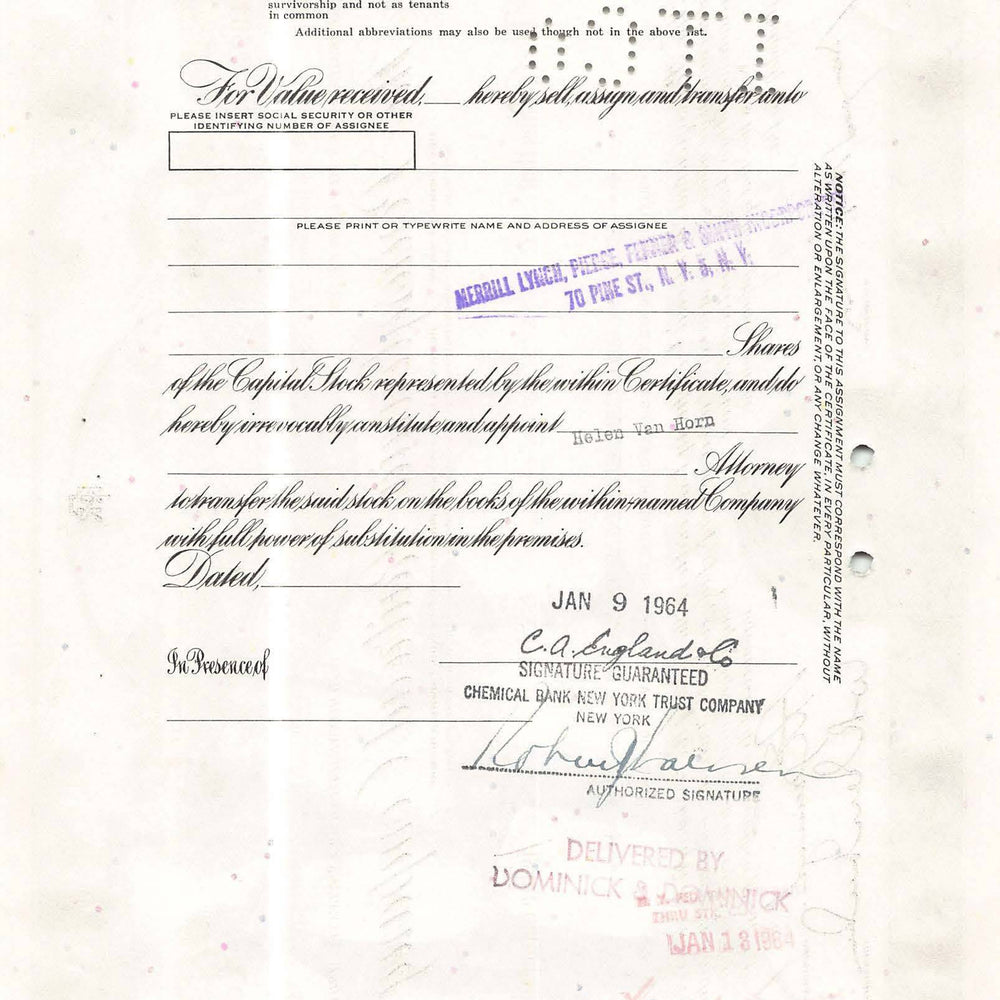 survivorship and not as tenants
in common
Additional abbreviations may also be used though not in the above list.
For Value received, hereby sell, assign and transfer unto
PLEASE INSERT SOCIAL SECURITY OR OTHER
IDENTIFYING NUMBER OF ASSIGNEE
PLEASE PRINT OR TYPEWRITE NAME AND ADDRESS OF ASSIGNEE
MERRILL LYNCH, PIERCE, FENNER & SMITH INCORPOR
70 PINE ST., N. Y. 5, N. Y.
Shares
of the Capital Stock represented by the within Certificate, and do
hereby irrevocably constitute and appoint Helen Van Horn
Attorney
to transfer the said stock on the books of the within-named Company
with full power of substitution in the premises.
Dated,
JAN 9 1964
C. A. England & Co
In Presence of
SIGNATURE GUARANTEED
CHEMICAL BANK NEW YORK TRUST COMPANY
NEW YORK
AUTHORIZED SIGNATURE
DELIVERED BY
DOMINICK & DOMINICK
THRU
JAN 13 1964
NOTICE: THE SIGNATURE TO THIS ASSIGNMENT MUST CORRESPOND WITH THE NAME
AS WRITTEN UPON THE FACE OF THE CERTIFICATE, IN EVERY PARTICULAR, WITHOUT
ALTERATION OR ENLARGEMENT, OR ANY CHANGE WHATEVER.